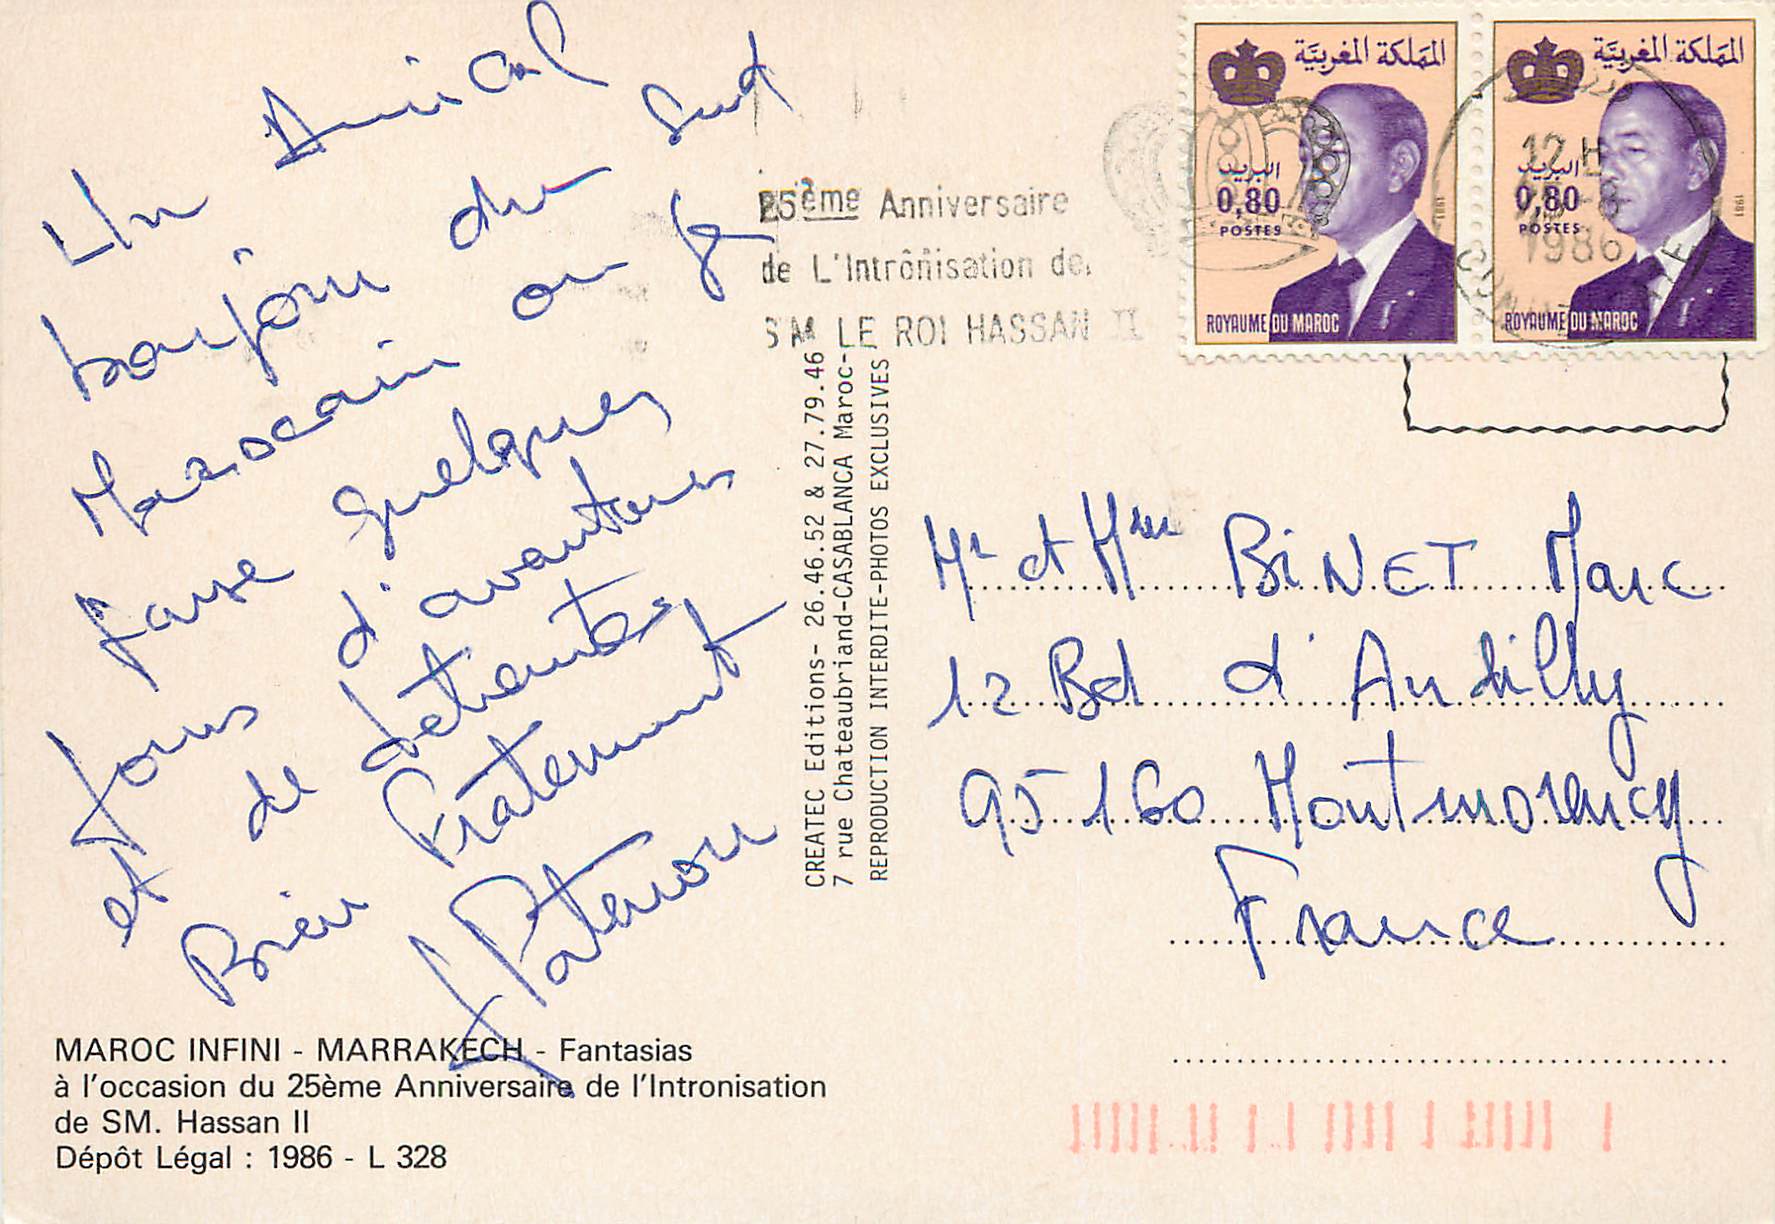 Un Amical
bonjour du Sud
Marocain ou je
passe quelques
jours d'aventures
et de détentes
Bien Fraternment
Paterion
MAROC INFINI - MARRAKECH - Fantasias
à l'occasion du 25ème Anniversaire de l'Intronisation
de SM. Hassan II
Dépôt Légal : 1986 - L 328
CREATEC Editions- 26.46.52 & 27.79.46
7 rue Chateaubriand-CASABLANCA Maroc-
REPRODUCTION INTERDITE-PHOTOS EXCLUSIVES
25ème Anniversaire
de L'Intrônisation de
S M LE ROI HASSAN II
المملكة المغربية
البريد
0,80
POSTES
1981
ROYAUME DU MAROC
المملكة المغربية
البريد
0,80
POSTES
1981
ROYAUME DU MAROC
12 H
1986
Mr et Mme BINET Marc
12 Bd d'Andilly
95160 Montmorency
France